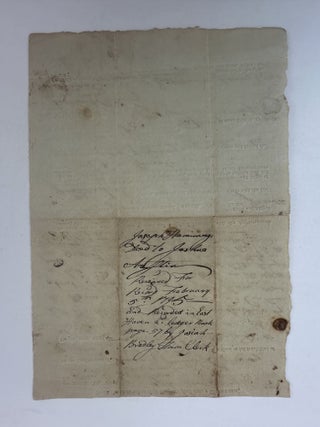 Joseph Hemiway
Deed to Joshua
Austin
Received For
Record February
5th 1795
and Recorded in East
Haven 2d Ledger Book
page 57 by Josiah
Bradley Town Clerk